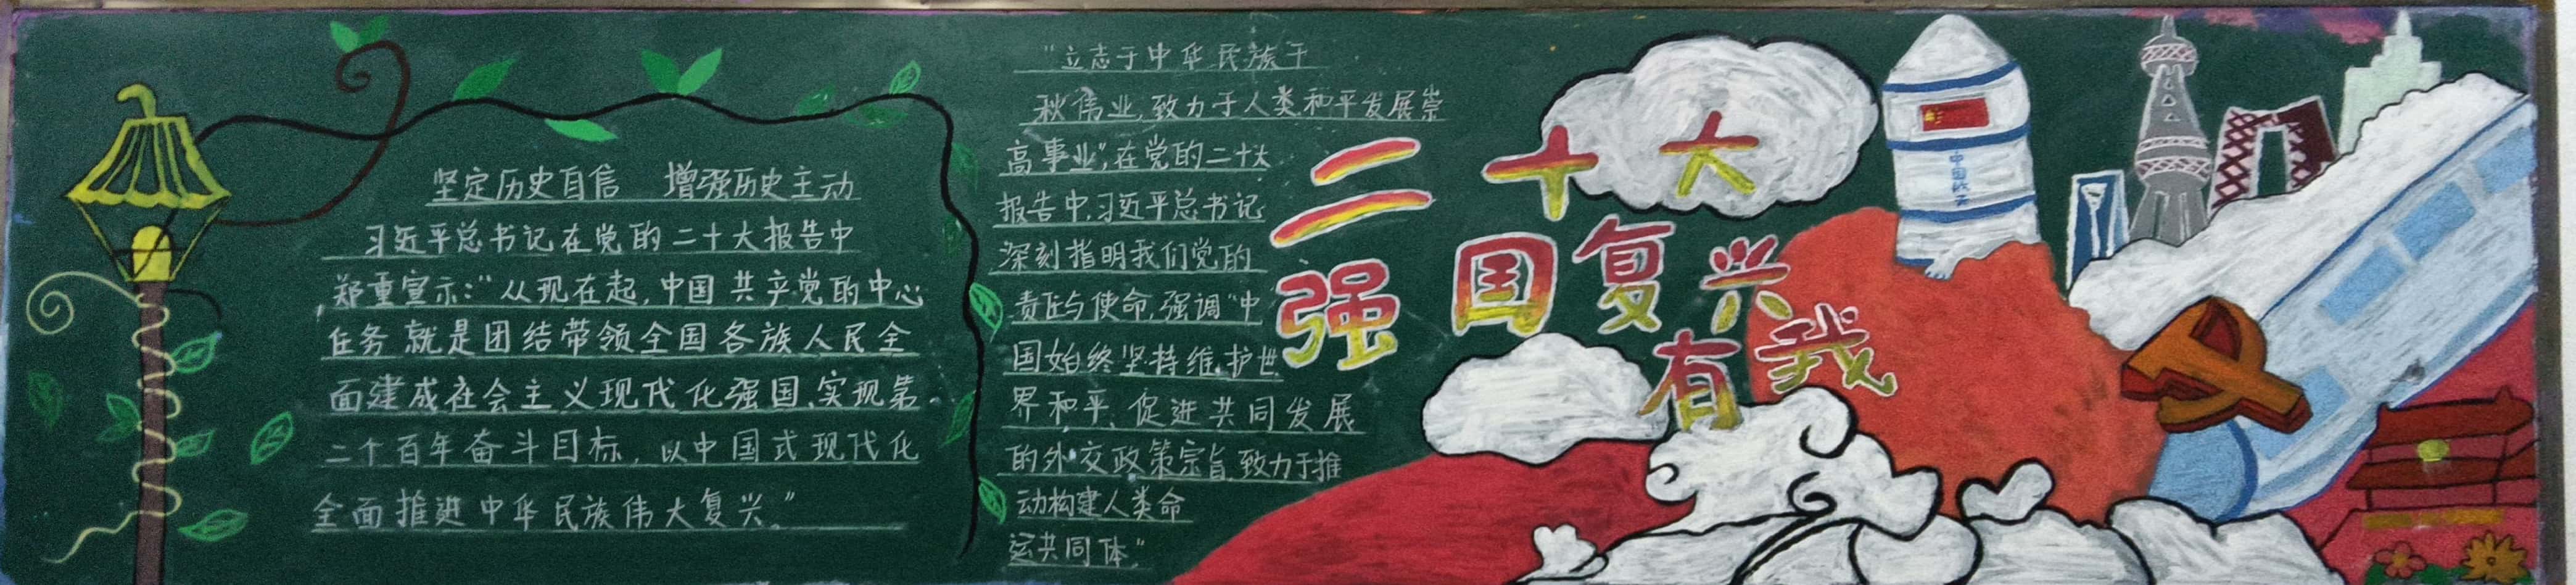 坚定历史自信 增强历史主动
习近平总书记在党的二十大报告中
郑重宣示:“从现在起,中国共产党的中心
任务就是团结带领全国各族人民全
面建成社会主义现代化强国、实现第
二个百年奋斗目标,以中国式现代化
全面推进中华民族伟大复兴。”
“立志于中华民族千
秋伟业,致力于人类和平发展崇
高事业”,在党的二十大
报告中,习近平总书记
深刻指明我们党的
责任与使命,强调“中
国始终坚持维护世
界和平、促进共同发展
的外交政策宗旨,致力于推
动构建人类命
运共同体”
二十大
强国复兴
有我
中国航天